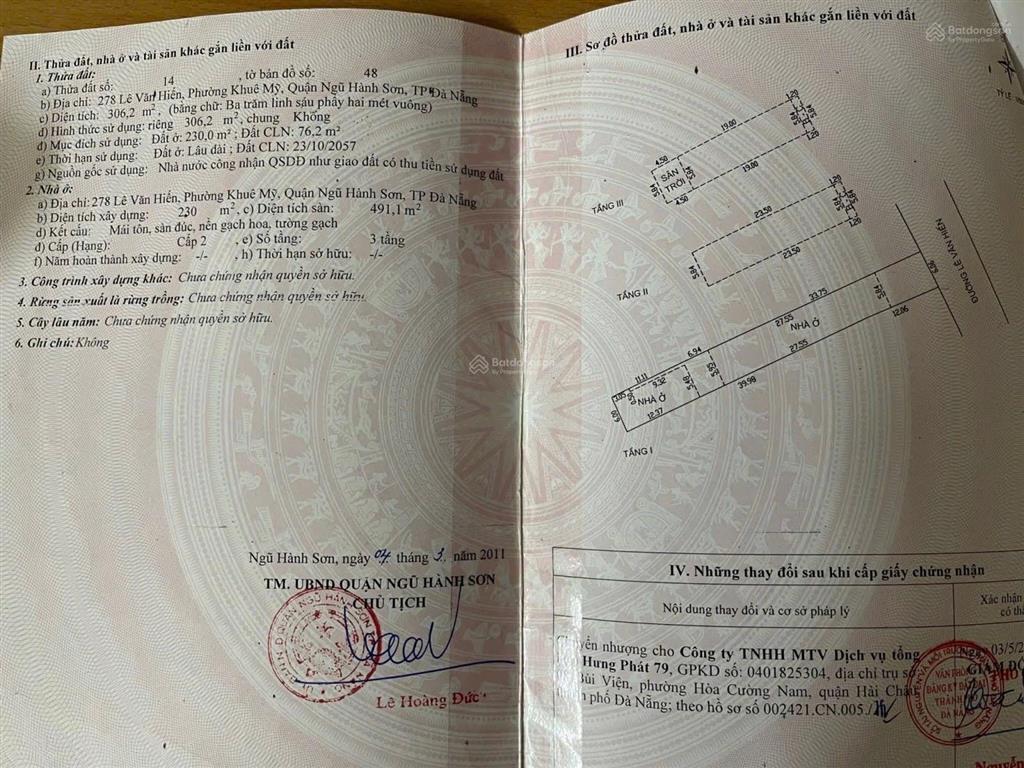 II. Thửa đất, nhà ở và tài sản khác gắn liền với đất
1. Thửa đất:
a) Thửa đất số: 14 , tờ bản đồ số: 48
b) Địa chỉ: 278 Lê Văn Hiến, Phường Khuê Mỹ, Quận Ngũ Hành Sơn, TP Đà Nẵng
c) Diện tích: 306,2 m², (bằng chữ: Ba trăm linh sáu phẩy hai mét vuông)
d) Hình thức sử dụng: riêng 306,2 m², chung Không
đ) Mục đích sử dụng: Đất ở: 230,0 m² ; Đất CLN: 76,2 m²
e) Thời hạn sử dụng: Đất ở: Lâu dài ; Đất CLN: 23/10/2057
g) Nguồn gốc sử dụng: Nhà nước công nhận QSDĐ như giao đất có thu tiền sử dụng đất
2. Nhà ở:
a) Địa chỉ: 278 Lê Văn Hiến, Phường Khuê Mỹ, Quận Ngũ Hành Sơn, TP Đà Nẵng
b) Diện tích xây dựng: 230 m², c) Diện tích sàn: 491,1 m²
d) Kết cấu: Mái tôn, sàn đúc, nền gạch hoa, tường gạch
đ) Cấp (Hạng): Cấp 2 , e) Số tầng: 3 tầng
f) Năm hoàn thành xây dựng: -/- , h) Thời hạn sở hữu: -/-
3. Công trình xây dựng khác: Chưa chứng nhận quyền sở hữu.
4. Rừng sản xuất là rừng trồng: Chưa chứng nhận quyền sở hữu.
5. Cây lâu năm: Chưa chứng nhận quyền sở hữu.
6. Ghi chú: Không
Ngũ Hành Sơn, ngày 04 tháng 3 năm 2011
TM. UBND QUẬN NGŨ HÀNH SƠN
CHỦ TỊCH
Lê Hoàng Đức
III. Sơ đồ thửa đất, nhà ở và tài sản khác gắn liền với đất
TỶ LỆ
4.50
19.00
1.29
5.84
SÂN TRỜI
5.84
5.84
4.50
19.00
1.20
TẦNG III
23.50
5.84
5.84
23.50
1.20
TẦNG II
ĐƯỜNG LÊ VĂN HIẾN
33.75
5.84
27.55
NHÀ Ở
27.55
12.06
6.94
11.11
9.32
5.48
5.59
39.98
1.05
NHÀ Ở
12.37
6.00
TẦNG I
Batdongsan
by PropertyGuru
Batdongsan
by PropertyGuru
IV. Những thay đổi sau khi cấp giấy chứng nhận
Nội dung thay đổi và cơ sở pháp lý
Xác nhận
có th
yển nhượng cho Công ty TNHH MTV Dịch vụ tổng
Hưng Phát 79, GPKD số: 0401825304, địa chỉ trụ sở
Bùi Viện, phường Hòa Cường Nam, quận Hải Châu
phố Đà Nẵng; theo hồ sơ số 002421.CN.005./
03/5/2
GIÁM ĐỐ
VĂN PHÒNG
ĐĂNG KÝ ĐẤT ĐAI
THÀNH PHỐ
ĐÀ NẴNG
Nguyễn